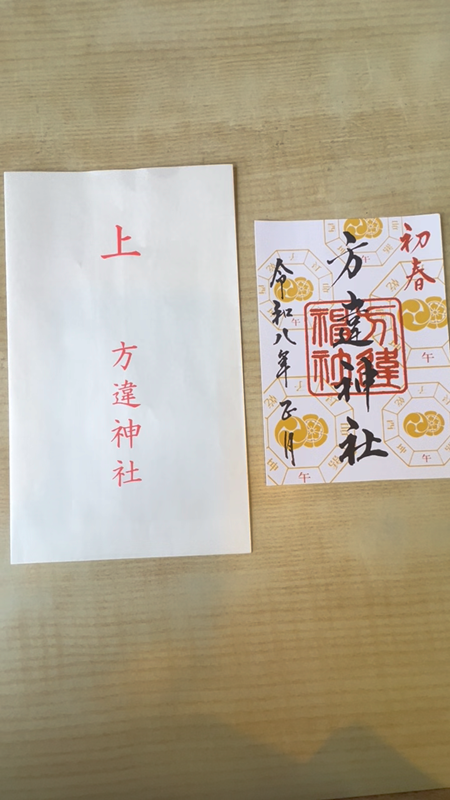 上
方違神社
初春
方違神社
令和八年正月
方違
神社
午
午
午